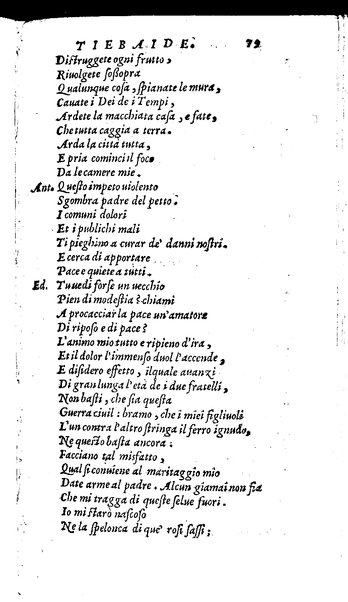 TIEBAIDE. 79
Diſtruggete ogni frutto,
Riuolgete ſoſſopra
Qualunque coſa, ſpianate le mura,
Cauate i Dei de i Tempi,
Ardete la macchiata caſa, e fate,
Che tutta caggia a terra.
Arda la città tutta,
E pria cominci il foco
Da le camere mie.
Ant. Queſto impeto uiolento
Sgombra padre del petto.
I comuni dolori
Et i publichi mali
Ti pieghino a curar de' danni noſtri.
E cerca di apportare
Pace e quiete a tutti.
Ed. Tu uedi forſe un uecchio
Pien di modeſtia? chiami
A procacciar la pace un'amatore
Di ripoſo e di pace?
L'animo mio tutto e ripieno d'ira,
Et il dolor l'immenſo duol l'accende,
E diſidero effetto, ilquale auanzi
Di gran lunga l'età de i due fratelli,
Non baſti, che ſia queſta
Guerra ciuil: bramo, che i miei figliuoli
L'un contra l'altro ſtringa il ferro ignudo,
Ne queſto baſta ancora:
Facciano tal misfatto,
Qual ſi conuiene al maritaggio mio
Date arme al padre. Alcun giamai non ſia
Che mi tragga di queſte ſelue fuori.
Io mi ſtarò naſcoſo
Ne la ſpelonca di que' roſi ſaſſi;